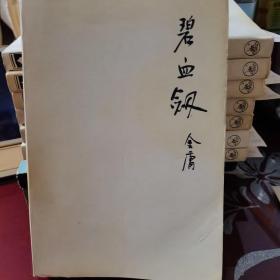 碧血劍
金庸